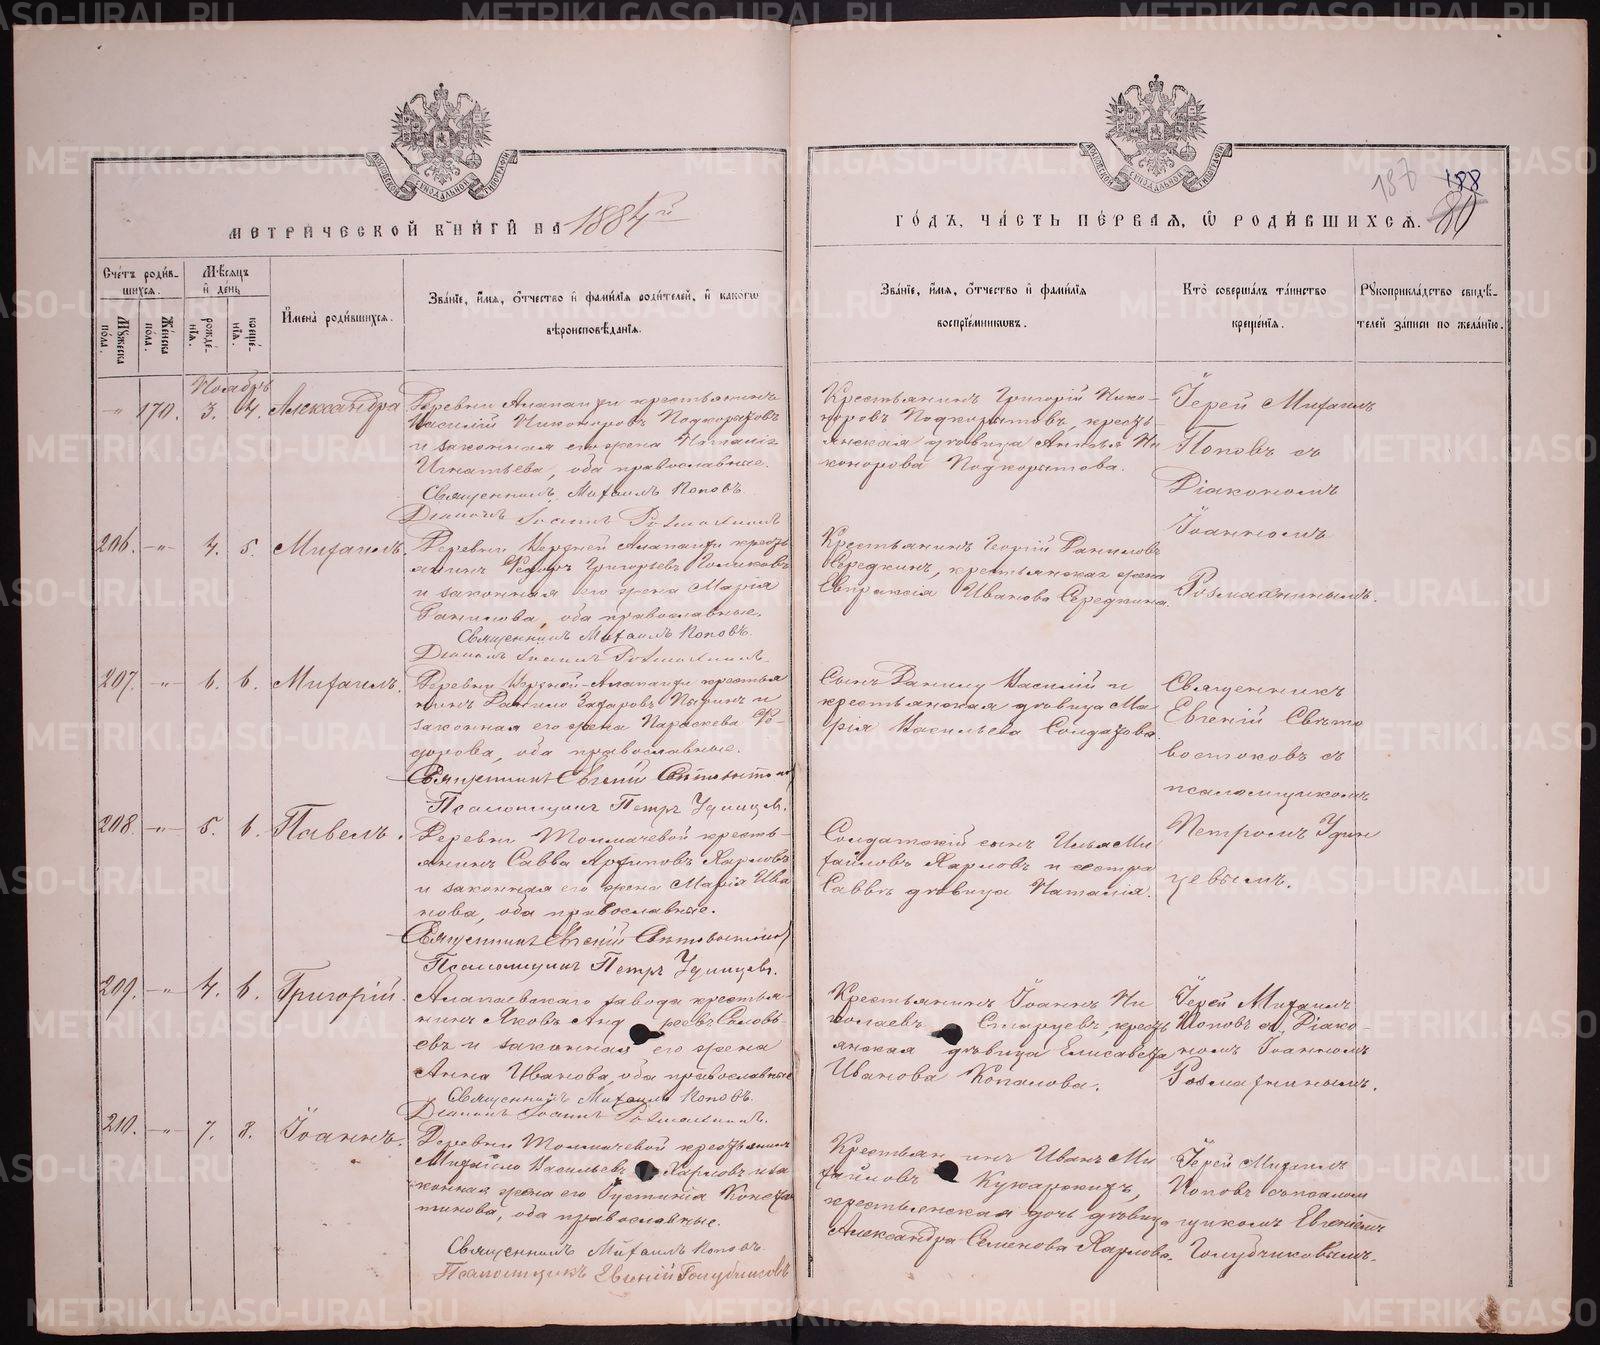 МЕТРИЧЕСКОЙ КНИГИ НА 1884 й
ГОДЪ, ЧАСТЬ ПЕРВАЯ, Ѡ РОДИВШИХСЯ.
188
80
Счетъ родив-
шихся.
Мужеска пола.
Женска пола.
Мѣсяцъ и день
рожде-
нія.
креще-
нія.
Имена родившихся.
Званіе, имя, отчество и фамилія родителей, и какогѡ
вѣроисповѣданія.
Званіе, имя, отчество и фамилія
воспріемникѡвъ.
Кто совершалъ таинство
крещенія.
Рукоприкладство свидѣ-
телей записи по желанію.
Ноябрь
170. 3. 4. Александра
Деревни Алапаихи крестьянинъ
Василій Никоноровъ Подкорытовъ
и законная его жена Наталія
Игнатьева, оба православные.
Священникъ Михаилъ Поповъ
Діаконъ Іоаннъ
Крестьянинъ Григорій Нико-
норовъ Подкорытовъ, кресть-
янская дѣвица Ни
конорова Подкорытова.
Іерей Михаилъ
Поповъ съ
Діакономъ
Іоанномъ
Розмахнинымъ.
206. 4. 5. Михаилъ.
Деревни Верхней Алапаихи кресть
янинъ Ѳедоръ Григорьевъ
и законная его жена Марія
Данилова, оба православные.
Священникъ Михаилъ Поповъ.
Діаконъ Іоаннъ
Крестьянинъ Георгій Даниловъ
Середкинъ, крестьянская жена
Евпраксія Иванова Середкина.
207. 6. 6. Михаилъ.
Деревни Верхней Алапаихи крестья
нинъ Данило Захаровъ и
законная его жена Параскева Ѳе-
дорова, оба православные.
Священникъ Евгеній
Псаломщикъ Петръ Удинцевъ.
Сынъ Данилу Василій и
крестьянская дѣвица Ма-
рія Васильева Солдатова.
Священникъ
Евгеній Свѣто
востоковъ съ
псаломщикомъ
Петромъ Удин
цевымъ.
208. 5. 6. Павелъ.
Деревни Толмачевой кресть-
янинъ Савва Архиповъ Карловъ
и законная его жена Марія Ива
нова, оба православные.
Священникъ Евгеній
Псаломщикъ Петръ Удинцевъ.
Солдатскій сынъ Илья Ми
хайловъ Карловъ и сестра
Саввы дѣвица Наталія.
209. 4. 6. Григорій.
Алапаевскаго завода крестья-
нинъ Яковъ Андреевъ Соловь-
евъ и законная его жена
Анна Иванова, оба православные
Священникъ Михаилъ Поповъ.
Діаконъ Іоаннъ
Крестьянинъ Іоаннъ Ни
колаевъ Старцевъ, кресть
янская дѣвица Елисавета
Иванова Копалова.
Іерей Михаилъ
Поповъ съ Діако-
номъ Іоанномъ
Розмахнинымъ.
210. 7. 8. Іоаннъ.
Деревни Толмачевой крестьянинъ
Михайло Васильевъ Карловъ и за
конная жена его Іустинія Констан
тинова, оба православные.
Священникъ Михаилъ Поповъ
Псаломщикъ Евгеній Голубчиковъ
Крестьянинъ Иванъ Ми
хайловъ Кукарскихъ,
крестьянская дочь дѣвица
Александра Семенова Карлова.
Іерей Михаилъ
Поповъ съ псалом
щикомъ Евгеніемъ
Голубчиковымъ.
METRIKI.GASO-URAL.RU